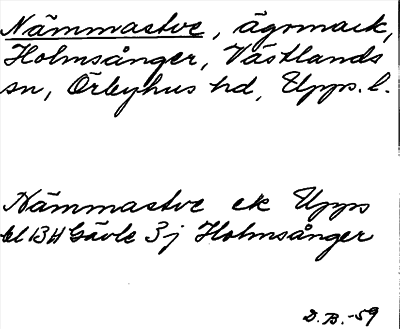 Nämmastve, ägomark,
Holmsånger, Västlands
sn, Örbyhus hd, Upps. l.
Nämmastve ek Upps
bl 13H Gävle 3j Holmsånger
D.B.-59